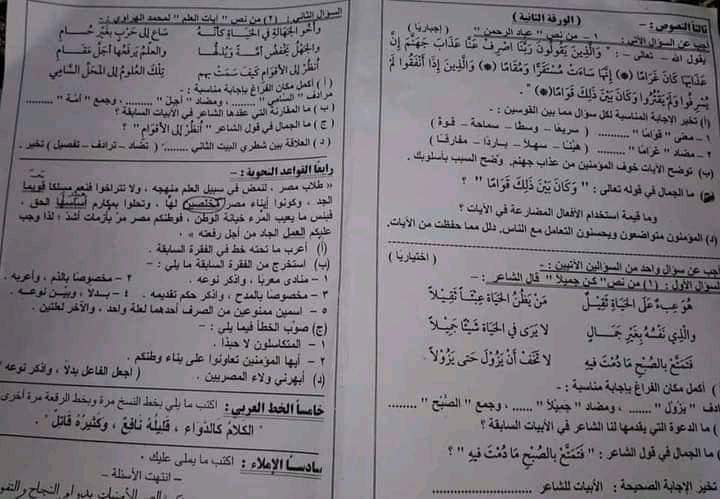 ثالثاً النصوص : -
( الورقة الثانية )
أجب عن السؤال الآتي :
١ - من نص " عباد الرحمن " ( إجبارياً )
يقول الله - تعالى - : " وَالَّذِينَ يَقُولُونَ رَبَّنَا اصْرِفْ عَنَّا عَذَابَ جَهَنَّمَ إِنَّ
عَذَابَهَا كَانَ غَرَامًا (*) إِنَّهَا سَاءَتْ مُسْتَقَرًّا وَمُقَامًا (*) وَالَّذِينَ إِذَا أَنْفَقُوا لَمْ
يُسْرِفُوا وَلَمْ يَقْتُرُوا وَكَانَ بَيْنَ ذَلِكَ قَوَامًا (*) " .
(أ) تخير الإجابة المناسبة لكل سؤال مما بين القوسين : -
١ - معنى " قوامًا " ......... ( سريعًا - وسطًا - سماحة - قوة )
٢ - مضاد " غرامًا " ......... ( هيّنًا - سهلاً - باردًا - مفارقًا )
(ب) توضح الآيات خوف المؤمنين من عذاب جهنم. وضح السبب بأسلوبك .
(ج) ما الجمال في قوله تعالى : " وَكَانَ بَيْنَ ذَلِكَ قَوَامًا " ؟
وما قيمة استخدام الأفعال المضارعة في الآيات ؟
(د) المؤمنون متواضعون ويحسنون التعامل مع الناس. دلل مما حفظت من الآيات.
أجب عن سؤال واحد من السؤالين الآتيين : -
( اختيارياً )
السؤال الأول : (١) من نص " كن جميلاً " قال الشاعر : -
هُوَ عِبءٌ عَلَى الحَيَاةِ ثَقِيلٌ مَنْ يَظُنُّ الحَيَاةَ عِبْئًا ثَقِيلاً
والَّذِي نَفْسُهُ بِغَيرِ جَمَالٍ لا يَرَى فِي الحَيَاةِ شَيْئًا جَمِيلاً
فَتَمَتَّعْ بِالصُّبْحِ مَا دُمْتَ فِيهِ لا تَخَفْ أَنْ يَزُولَ حَتَى يَزُولاً.
) أكمل مكان الفراغ بإجابة مناسبة : -
ادف " يزول " ...... ، ومضاد " جميلاً " ...... ، وجمع " الصُّبْح " ........
) ما الدعوة التي يقدمها لنا الشاعر في الأبيات السابقة ؟
ما الجمال في قول الشاعر : " فَتَمَتَّعْ بِالصُّبْحِ مَا دُمْتَ فِيهِ " ؟
تخير الإجابة الصحيحة : الأبيات للشاعر
السؤال الثاني : (٢) من نص " آيات العلم " لمحمد الهراوي : -
وَأَخُو الجَهَالَةِ فِي الحَيَاةِ كَأَنَّهُ سَاعٍ إِلَى حَرْبٍ بِغَيْرِ حُسَامِ
والجَهْلُ يَخْفِضُ أُمَّةً وَيُذِلُّهَا والعِلْمُ يَرفَعُهَا أَجَلَّ مَقَامِ
أُنظُر إِلَى الأَقْوَامِ كَيفَ سَمَتْ بِهم تِلكَ العُلُومُ إِلَى المَحَلِّ السَّامِي
( أ ) أكمل مكان الفراغ بإجابة مناسبة : -
مرادف " السامي " ........ ، ومضاد " أجلّ " ........ ، وجمع " أمّة " ........
(ب) ما المقارنة التي عقدها الشاعر في الأبيات السابقة ؟
( ج ) ما الجمال في قول الشاعر " أُنْظُرْ إِلَى الأَقْوَامِ " ؟
( د ) العلاقة بين شطري البيت الثاني ........ ( تضاد - ترادف - تفصيل ) تخير .
رابعًا القواعد النحوية : -
« طلاب مصر . لنمض في سبيل العلم منهجه ، ولا تتراخوا فنعم مسلكا قويما
الجد ، وكونوا أبناء مصر مخلصين لها ، وتحلوا بمكارم أساسها الحق .
فبئس ما يعيب المرء خيانة الوطن ، فوطنكم مصر مرّ بأزمات أشد ، لذا وجب
عليكم العمل الجاد من أجل رفعته » .
( أ ) أعرب ما تحته خط في الفقرة السابقة .
(ب) استخرج من الفقرة السابقة ما يلي : -
١ - منادى معربًا ، واذكر نوعه . ٢ - مخصوصًا بالذم ، وأعربه .
٣ - مخصوصًا بالمدح ، واذكر حكم تقديمه . ٤ - بدلاً ، وبيّن نوعه .
٥ - اسمين ممنوعين من الصرف أحدهما لعلة واحد ، والآخر لعلتين .
(ج) صوّب الخطأ فيما يلي : -
١ - المتكاسلون لا حبذا .
٢ - أيها المؤمنين تعاونوا على بناء وطنكم .
(د) أبهرني ولاء المصريين . ( اجعل الفاعل بدلاً ، واذكر نوعه )
خامسًا الخط العربي : اكتب ما يلي بخط النسخ مرة وبخط الرقعة مرة أخرى
" الكَلامُ كَالدَّوَاءِ ، قَلِيلُهُ نَافِعٌ ، وَكَثِيرُهُ قَاتِلٌ " .
سادسًا الإملاء : اكتب ما يملى عليك .
- انتهت الأسئلة -